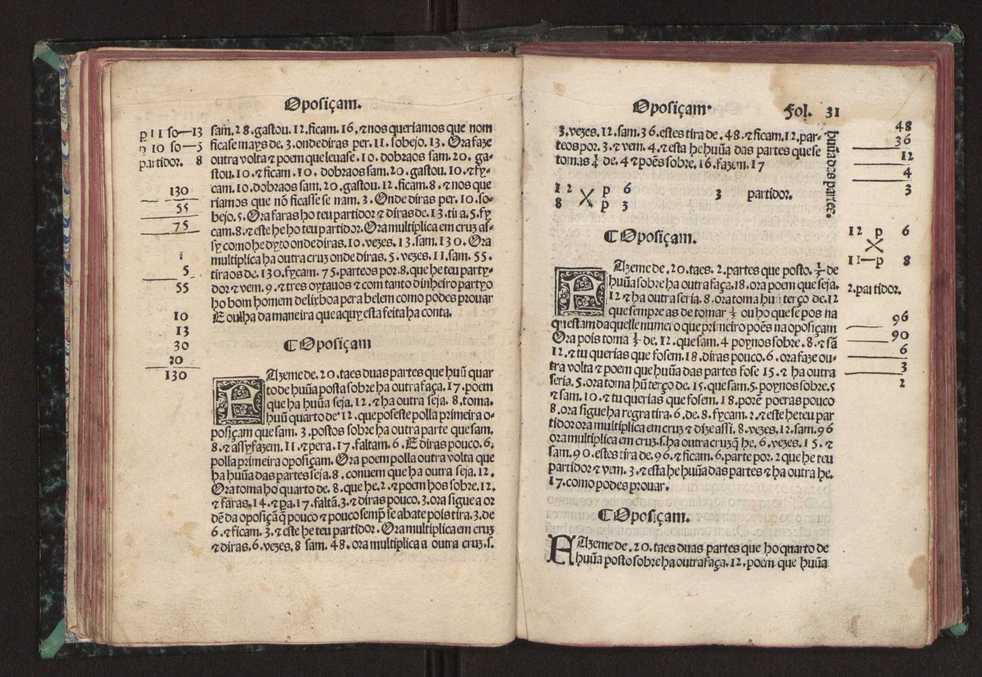 Oposiçam.
p 11 so—13
p 10 so—5
partidor. 8
130
55
75
1
5
55
10
13
30
20
130
sam. 28. gastou. 12. ficam. 16. ⁊ nos queriamos que nom
ficase mays de. 3. onde diras per. 11. sobejo. 13. Ora faze
outra volta ⁊ poem que leuase. 10. dobraos sam. 20. ga-
stou. 10 ⁊ ficam. 10. dobraos sam. 20. gastou. 10. ⁊ fy-
cam. 10. dobraos sam. 20. gastou. 12. ficam. 8. ⁊ nos que
riamos que nõ ficasse se nam. 3. Onde diras per. 10. so-
bejo. 5. Ora faras ho teu partidor ⁊ diras de. 13. tira. 5. fy
cam. 8. ⁊ este he ho teu partidor. Ora multiplica em cruz as-
sy como he dyto onde diras. 10. vezes. 13. sam. 130. Ora
multiplica ha outra cruz onde diras. 5. vezes. 11. sam. 55.
tira os de. 130. fycam. 75. parte os por. 8. que he teu party-
dor ⁊ vem. 9. ⁊ tres oytauos ⁊ com tanto dinheiro partyo
ho bom homem de lixboa pera belem como podes prouar
E oulha da maneira que aquy esta feita ha conta.
¶ Oposiçam
FAzeme de. 20. taes duas partes que huũ quar
to de huũa posta sobre ha outra faça. 17. poem
que ha huũa seja. 12. ⁊ ha outra seja. 8. toma.
huũ quarto de. 12. que poseste polla primeira o-
posiçam que sam. 3. postos sobre ha outra parte que sam.
8. ⁊ assy fazem. 11. ⁊ pera. 17. faltam. 6. E diras pouco. 6.
polla primeira oposiçam. Ora poem polla outra volta que
ha huũa das partes seja. 8. conuem que ha outra seja. 12.
Ora toma ho quarto de. 8. que he. 2. ⁊ poem hos sobre. 12.
⁊ faras. 14. ⁊ pa. 17. faltã. 3. ⁊ diras pouco. 3. ora sigue a or
dẽ da oposiçã q̃ pouco ⁊ pouco semp̃ se abate pois tira. 3. de
6. ⁊ ficam. 3. ⁊ este he teu partidor. Ora multiplica em cruz
⁊ diras. 6. vezes. 8 sam. 48. ora multiplica a outra cruz. s.
Oposiçam.
Fol. 31
3. vezes. 12. sam. 36. estes tira de. 48. ⁊ ficam. 12. par-
te os por. 3. ⁊ vem. 4. ⁊ esta he huũa das partes que se
tomas ¼ de. 4. ⁊ poẽs sobre. 16. fazem. 17
12 p 6
8 p 3
3 partidor.
huũa das partes.
48
36
12
4
3
¶ Oposiçam.
FAzeme de. 20. taes. 2. partes que posto. ⅓ de
huũa sobre ha outra faça. 18. ora poem que seja.
12 ⁊ ha outra seria. 8. ora toma hũ terço de. 12
que sempre as de tomar ⅓ ou ho que se pos na
questam daquelle numero que primeiro poẽs na oposiçam
Ora pois toma ⅓ de. 12. que sam. 4 poynos sobre. 8. ⁊ sã
12. ⁊ tu querias que fosem. 18. diras pouco. 6. ora faze ou-
tra volta ⁊ poem que huũa das partes fose 15. ⁊ ha outra
seria. 5. ora toma hũ terço de. 15. que sam. 5. poynos sobre. 5
⁊ sam. 10. ⁊ tu querias que fosem. 18. porẽ poeras pouco
8. ora sigue ha regra tira. 6. de. 8. fycam. 2. ⁊ este he teu par
tidor ora multiplica em cruz ⁊ dize assi. 8. vezes. 12. sam. 96
ora multiplica em cruz. s. ha outra cruz q̃ he. 6. vezes. 15. ⁊
sam. 90. estes tira de. 96. ⁊ ficam. 6. parte por. 2 que he teu
partidor ⁊ vem. 3. ⁊ esta he huũa das partes ⁊ ha outra he.
17. como podes prouar.
12 p 6
11—p 8
2. partidor.
96
90
6
3
2
¶ Oposiçam.
FAzeme de. 20. taes duas partes que ho quarto de
huũa posto sobre ha outra faça. 12. poem que huũa